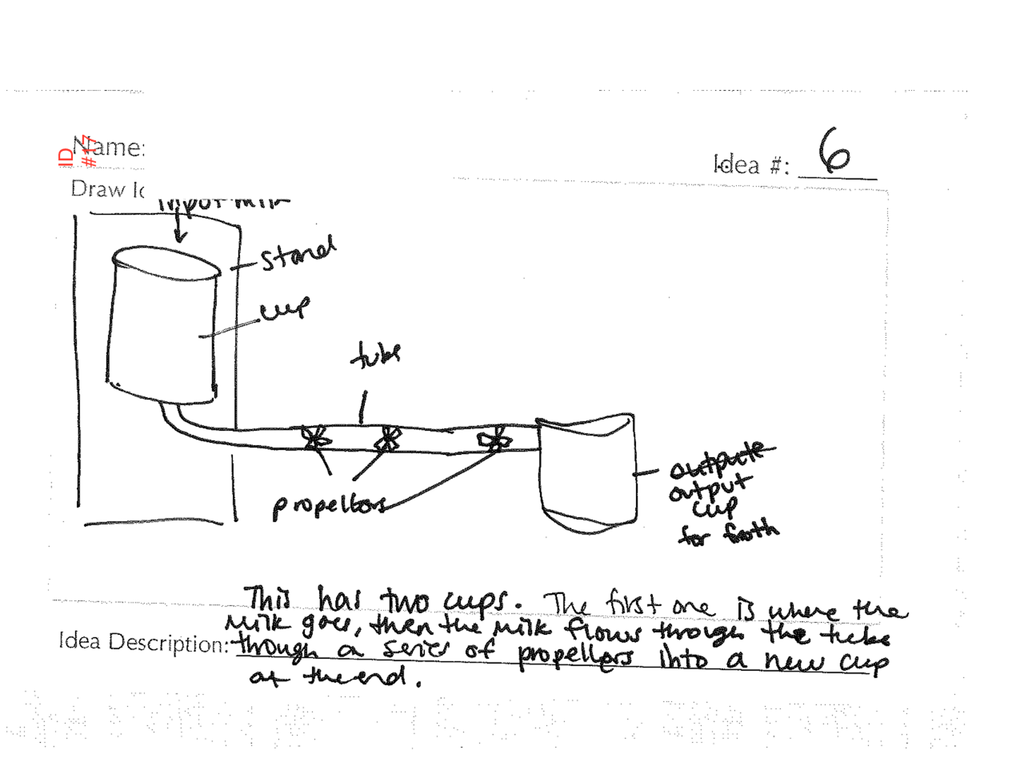 ID
#17
Name:
Idea #: 6
Draw Id
input milk
stand
cup
tube
propellors
outpute
output
cup
for froth
This has two cups. The first one is where the
milk goes, then the milk flows through the tube
Idea Description: through a series of propellers into a new cup
at the end.